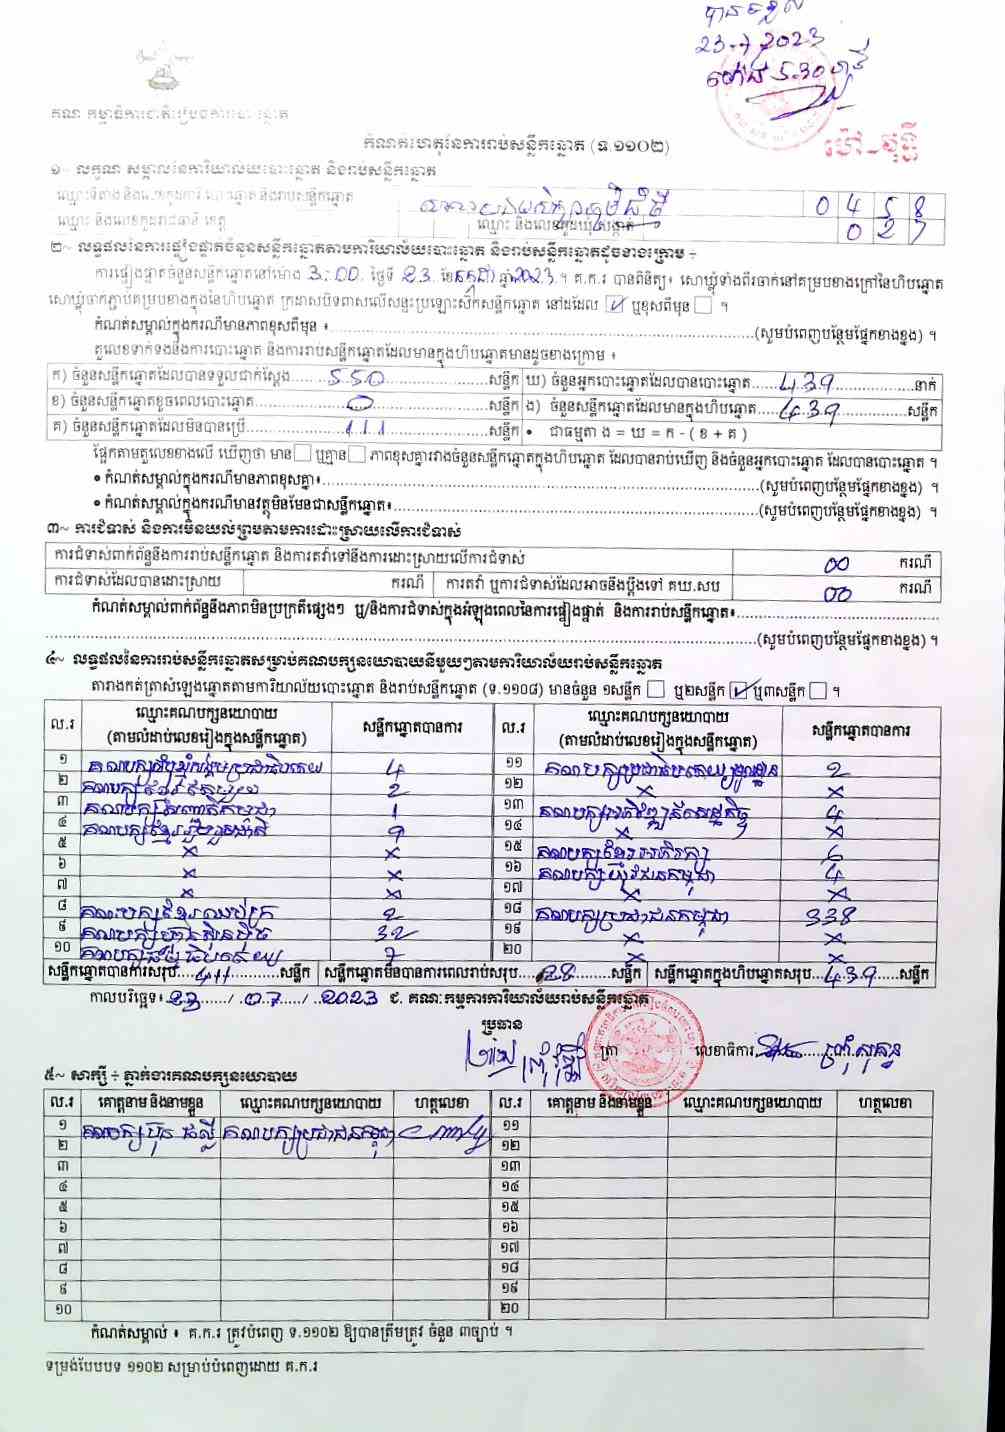 23-7-2023
ម៉ោង 5.30
គណៈកម្មាធិការជាតិរៀបចំការបោះឆ្នោត
កំណត់ហេតុនៃការរាប់សន្លឹកឆ្នោត (ទ.១១០២)
១~ លក្ខណៈសម្គាល់នៃការិយាល័យបោះឆ្នោត និងរាប់សន្លឹកឆ្នោត
ឈ្មោះទីតាំង និងលេខកូដការិ.បោះឆ្នោត និងរាប់សន្លឹកឆ្នោត 0 4 5 8
ឈ្មោះ និងលេខកូដរាជធានី ខេត្ត ឈ្មោះ និងលេខកូដឃុំ សង្កាត់ 0 2 7
២~ លទ្ធផលនៃការផ្ទៀងផ្ទាត់ចំនួនសន្លឹកឆ្នោតតាមការិយាល័យបោះឆ្នោត និងរាប់សន្លឹកឆ្នោតដូចខាងក្រោម ÷
ការផ្ទៀងផ្ទាត់ចំនួនសន្លឹកឆ្នោតនៅម៉ោង 3:00 ថ្ងៃទី 23 ខែ កក្កដា ឆ្នាំ 2023 ។ គ.ក.រ បានពិនិត្យ៖ សោឃ្លុំទាំងពីរចាក់នៅគម្របខាងក្រៅនៃហិបឆ្នោត
សោឃ្លុំចាក់ភ្ជាប់គម្របខាងក្នុងនៃហិបឆ្នោត ក្រដាសបិទពាសលើសន្ទះប្រឡោះស៊កសន្លឹកឆ្នោត នៅដដែល ☑ ឬខុសពីមុន ☐ ។
កំណត់សម្គាល់ក្នុងករណីមានភាពខុសពីមុន ៖ (សូមបំពេញបន្ថែមផ្នែកខាងខ្នង) ។
តួលេខទាក់ទងនឹងការបោះឆ្នោត និងការរាប់សន្លឹកឆ្នោតដែលមានក្នុងហិបឆ្នោតមានដូចខាងក្រោម ៖
ក) ចំនួនសន្លឹកឆ្នោតដែលបានទទួលជាក់ស្តែង 550 សន្លឹក ឃ) ចំនួនអ្នកបោះឆ្នោតដែលបានបោះឆ្នោត 439 នាក់
ខ) ចំនួនសន្លឹកឆ្នោតខូចពេលបោះឆ្នោត 0 សន្លឹក ង) ចំនួនសន្លឹកឆ្នោតដែលមានក្នុងហិបឆ្នោត 439 សន្លឹក
គ) ចំនួនសន្លឹកឆ្នោតដែលមិនបានប្រើ 111 សន្លឹក • ជាធម្មតា ង = ឃ = ក - ( ខ + គ )
ផ្អែកតាមតួលេខខាងលើ ឃើញថា មាន ☐ ឬគ្មាន ☐ ភាពខុសគ្នារវាងចំនួនសន្លឹកឆ្នោតក្នុងហិបឆ្នោត ដែលបានរាប់ឃើញ និងចំនួនអ្នកបោះឆ្នោត ដែលបានបោះឆ្នោត ។
• កំណត់សម្គាល់ក្នុងករណីមានភាពខុសគ្នា៖ (សូមបំពេញបន្ថែមផ្នែកខាងខ្នង) ។
• កំណត់សម្គាល់ក្នុងករណីមានវត្ថុមិនមែនជាសន្លឹកឆ្នោត៖ (សូមបំពេញបន្ថែមផ្នែកខាងខ្នង) ។
៣~ ការជំទាស់ និងការមិនយល់ព្រមតាមការដោះស្រាយលើការជំទាស់
ការជំទាស់ពាក់ព័ន្ធនឹងការរាប់សន្លឹកឆ្នោត និងការតវ៉ាទៅនឹងការដោះស្រាយលើការជំទាស់ 00 ករណី
ការជំទាស់ដែលបានដោះស្រាយ ករណី ការតវ៉ា ឬការជំទាស់ដែលអាចនឹងប្តឹងទៅ គឃ.សប 00 ករណី
កំណត់សម្គាល់ពាក់ព័ន្ធនឹងភាពមិនប្រក្រតីផ្សេងៗ ឬ/និងការជំទាស់ក្នុងអំឡុងពេលនៃការផ្ទៀងផ្ទាត់ និងការរាប់សន្លឹកឆ្នោត៖
(សូមបំពេញបន្ថែមផ្នែកខាងខ្នង) ។
៤~ លទ្ធផលនៃការរាប់សន្លឹកឆ្នោតសម្រាប់គណបក្សនយោបាយនីមួយៗតាមការិយាល័យរាប់សន្លឹកឆ្នោត
តារាងកត់ត្រាសំឡេងឆ្នោតតាមការិយាល័យបោះឆ្នោត និងរាប់សន្លឹកឆ្នោត (ទ.១១០៨) មានចំនួន ១សន្លឹក ☐ ឬ២សន្លឹក ☑ ឬ៣សន្លឹក ☐ ។
ល.រ ឈ្មោះគណបក្សនយោបាយ (តាមលំដាប់លេខរៀងក្នុងសន្លឹកឆ្នោត) សន្លឹកឆ្នោតបានការ ល.រ ឈ្មោះគណបក្សនយោបាយ (តាមលំដាប់លេខរៀងក្នុងសន្លឹកឆ្នោត) សន្លឹកឆ្នោតបានការ
១ គណបក្សសំបុកឃ្មុំសង្គមប្រជាធិបតេយ្យ 4 ១១ គណបក្សប្រជាធិបតេយ្យមូលដ្ឋាន 2
២ គណបក្សខ្មែរឯកភាព 2 ១២ × ×
៣ 1 ១៣ គណបក្សកសិករ 4
៤ គណបក្សខ្មែររួបរួមជាតិ 9 ១៤ × ×
៥ × × ១៥ គណបក្សខ្មែរអភិរក្ស 6
៦ × × ១៦ គណបក្សយុវជនកម្ពុជា 4
៧ × × ១៧ × ×
៨ គណបក្សខ្មែរឈប់ក្រ 2 ១៨ គណបក្សប្រជាជនកម្ពុជា 338
៩ គណបក្សហ៊្វុនស៊ិនប៉ិច 32 ១៩ × ×
១០ គណបក្សធម្មាធិបតេយ្យ 7 ២០ × ×
សន្លឹកឆ្នោតបានការសរុប 411 សន្លឹក សន្លឹកឆ្នោតមិនបានការពេលរាប់សរុប 28 សន្លឹក សន្លឹកឆ្នោតក្នុងហិបឆ្នោតសរុប 439 សន្លឹក
កាលបរិច្ឆេទ៖ 23 / 07 / 2023 ជ. គណៈកម្មការការិយាល័យរាប់សន្លឹកឆ្នោត
ប្រធាន
ត្រា លេខាធិការ
៥~ សាក្សី ÷ ភ្នាក់ងារគណបក្សនយោបាយ
ល.រ គោត្តនាម និងនាមខ្លួន ឈ្មោះគណបក្សនយោបាយ ហត្ថលេខា ល.រ គោត្តនាម និងនាមខ្លួន ឈ្មោះគណបក្សនយោបាយ ហត្ថលេខា
១ គណបក្សប្រជាជនកម្ពុជា ១១
២ ១២
៣ ១៣
៤ ១៤
៥ ១៥
៦ ១៦
៧ ១៧
៨ ១៨
៩ ១៩
១០ ២០
កំណត់សម្គាល់ ៖ គ.ក.រ ត្រូវបំពេញ ទ.១១០២ ឱ្យបានត្រឹមត្រូវ ចំនួន ៣ច្បាប់ ។
ទម្រង់បែបបទ ១១០២ សម្រាប់បំពេញដោយ គ.ក.រ